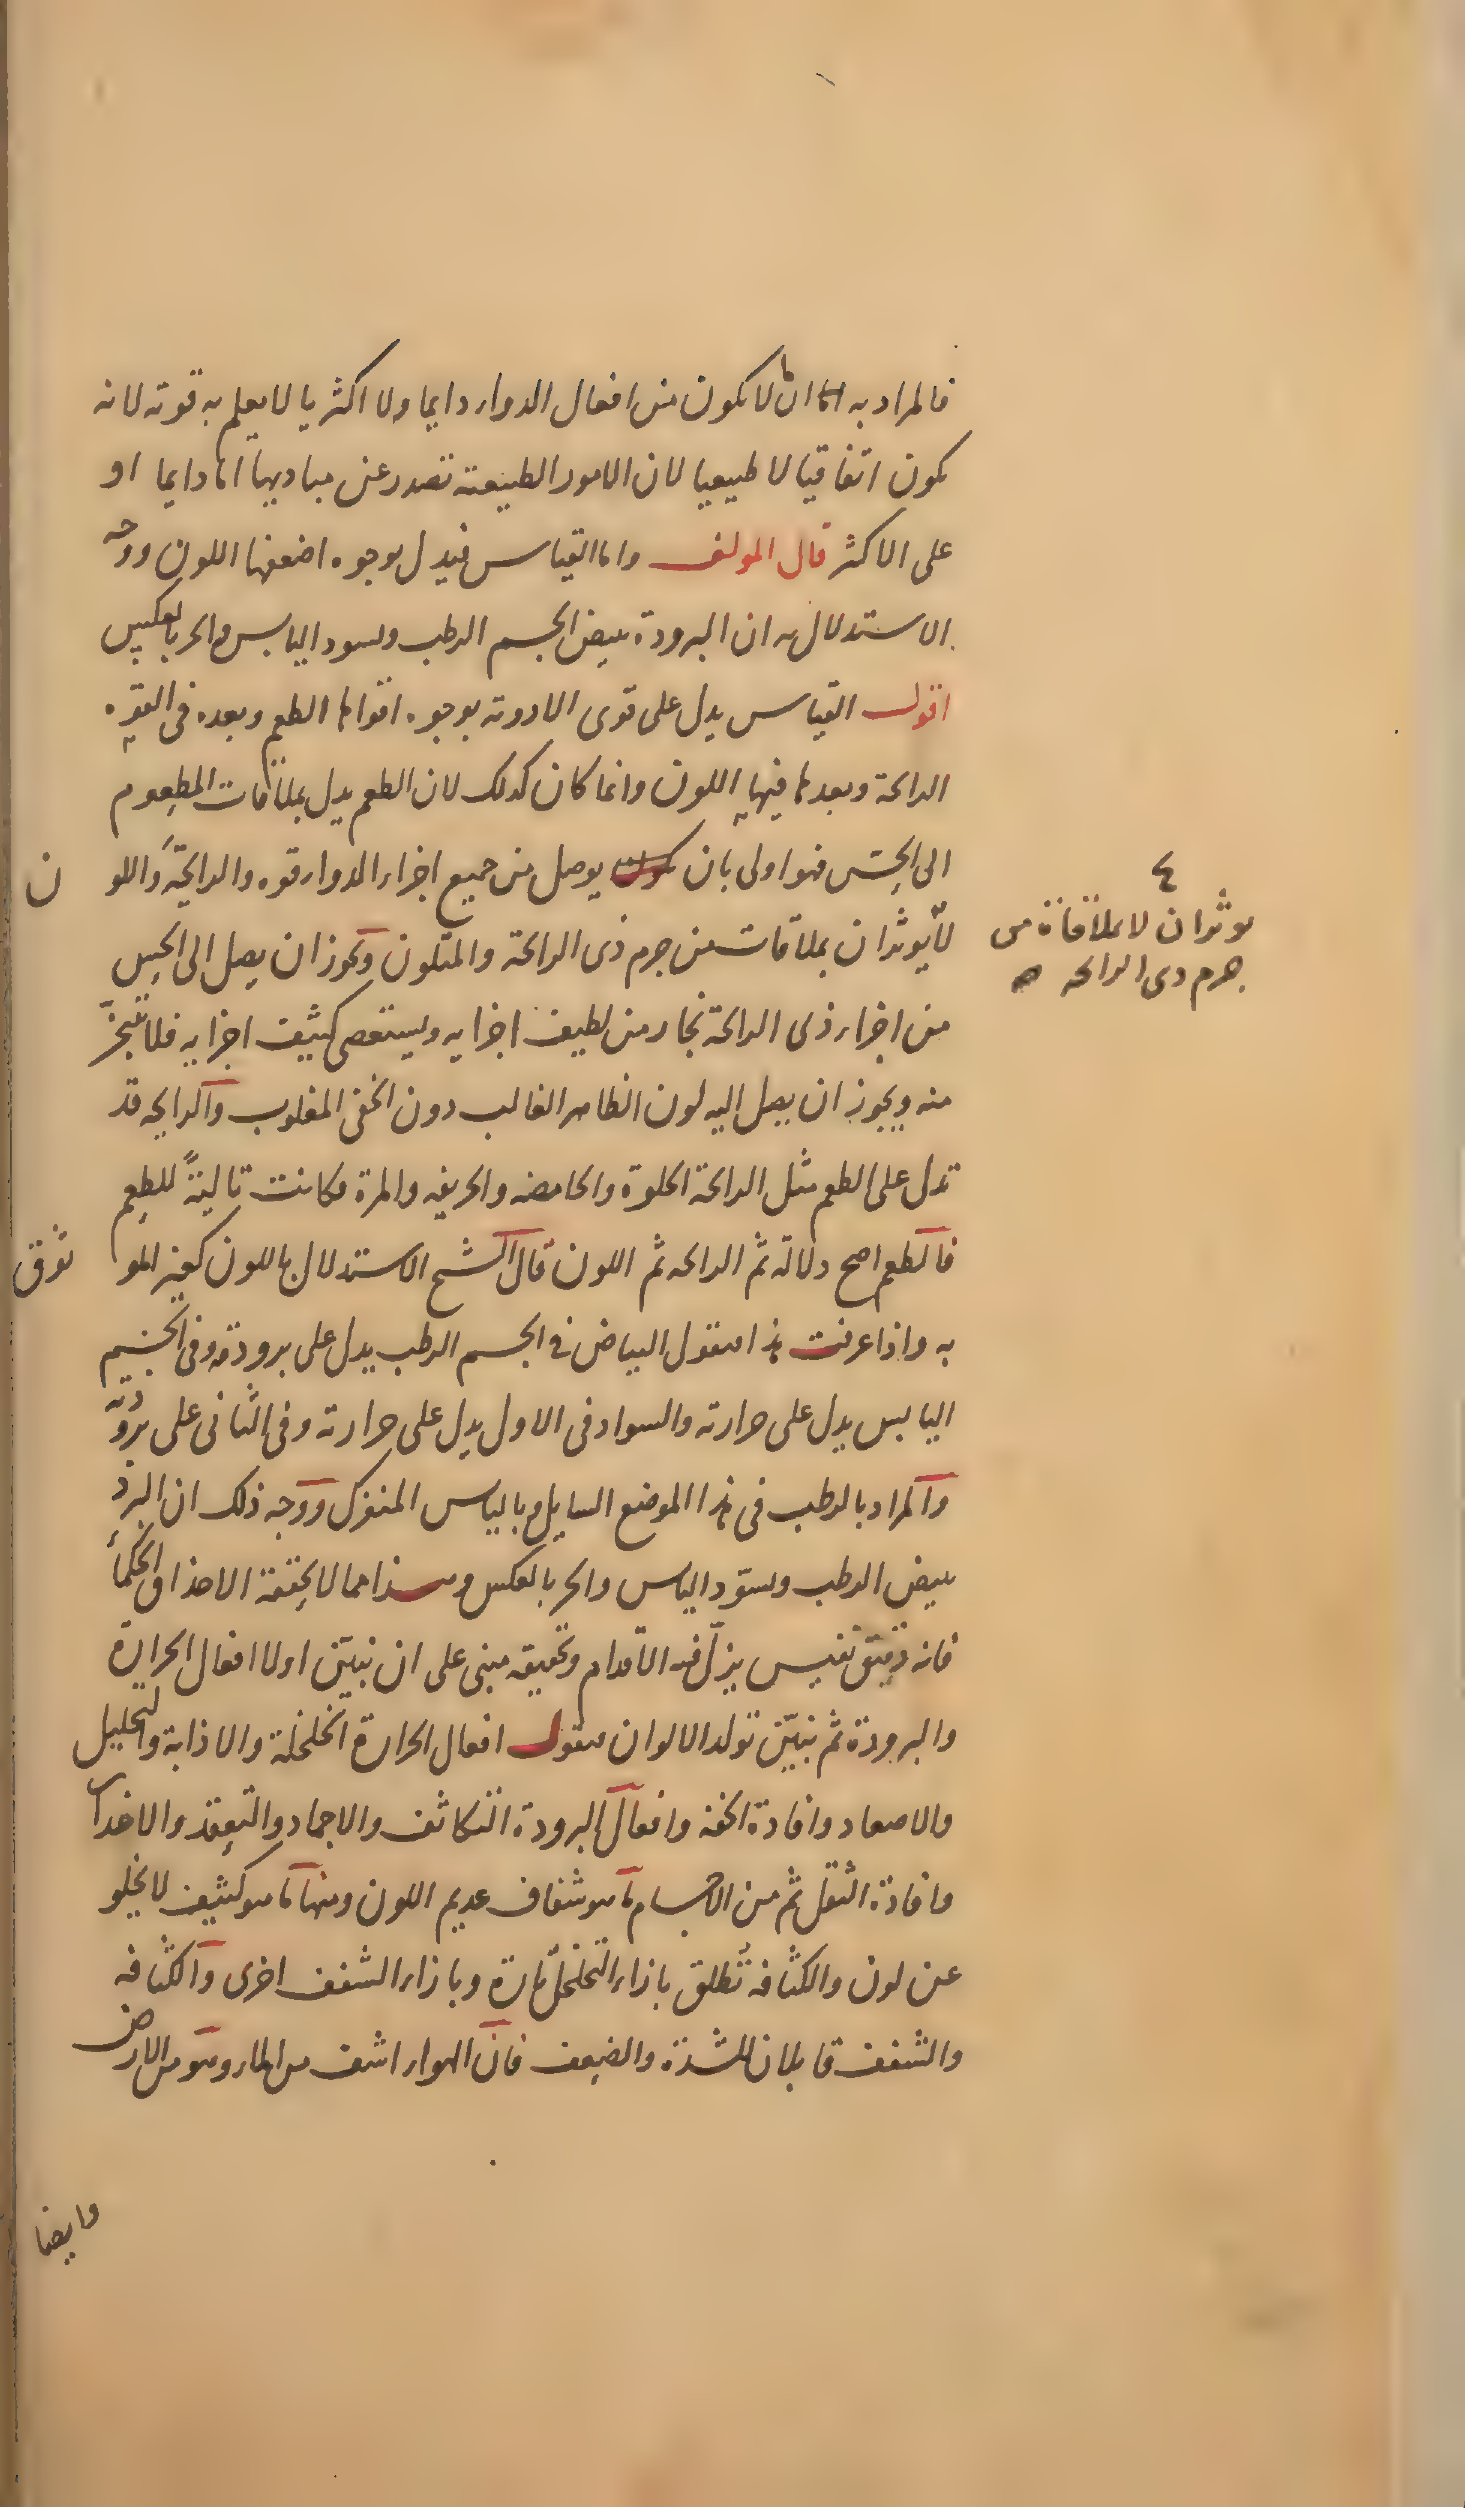 فالمراد به اما ان ما لا يكون من افعال الدواء دايما ولا اكثريا لا يعلم به قوته لانه
يكون اتفاقيا لا طبيعيا لان الامور الطبيعية تصدر عن مباديها اما دايما او
على الاكثر قال المولف واما القياس فيدل بوجوه اضعفها اللون ووجه
الاستدلال به ان البرودة يبيض الجسم الرطب ويسود اليابس والحر بالعكس
اقول القياس يدل على قوى الادوية بوجوه اقواها الطعم وبعده فى القوة
الرائحة وبعدها فيها اللون وانما كان كذلك لان الطعم يدل بملاقات المطعوم
الى الحس فهو اولى بان يوصل من جميع اجزاء الدواء قوه والرائحة واللون
لا يوثران بملاقات من جرم ذى الرائحة والمتلون ويجوز ان يصل الى الحس
من اجزاء ذى الرائحة بخار من لطيف اجزايه ويستعصى كثيف اجزايه فلا يتبخر
منه ويجوز ان يصل اليه لون الظاهر الغالب دون الخفى المغلوب والرايحه قد
تدل على الطعم مثل الرائحة الحلوة والحامضه والحريفه والمرة فكانت تالية للطعم
فالطعم اصح دلالة ثم الرائحه ثم اللون قال الشيخ الاستدلال باللون كغير الموثوق
به واذا عرفت هذا فنقول البياض فى الجسم الرطب يدل على برودته وفى الجسم
اليابس يدل على حرارته والسواد فى الاول يدل على حرارته وفى الثانى على برودته
والمراد بالرطب فى هذا الموضع السايل وباليابس المنفرك ووجه ذلك ان البرد
يبيض الرطب ويسود اليابس والحر بالعكس وهذا مما لا يحققه الا حذاق الحكماء
فانه دقيق نفيس يزل فيه الاقدام وتحقيقه مبنى على ان نبين اولا افعال الحرارة
والبرودة ثم نبين تولد الالوان فنقول افعال الحرارة الخلخلة والاذابة والتحليل
والاصعاد وافادة الخفة وافعال البرودة التكاثف والاجماد والتعقد والاحداث
وافادة الثقل ثم من الاجسام ما هو شفاف عديم اللون ومنها ما هو كثيف لا يخلو
عن لون والكثافة تطلق بازاء التخلخل تارة وبازاء الشفف اخرى والكثافه
والشفف قابلان للشدة والضعف فان الهواء اشف من الماء وهو من الارض
وايضا
٤
يوثران لا بملاقاة من
جرم ذى الرائحه